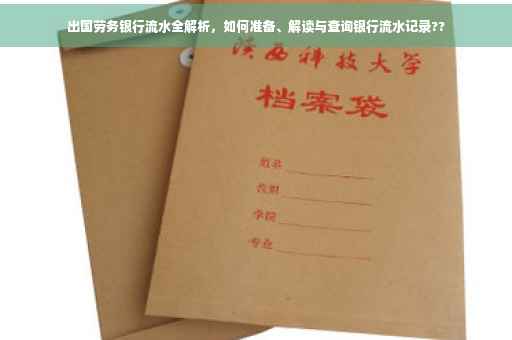 出国劳务银行流水全解析，如何准备、解读与查询银行流水记录??
陕西科技大学
档案袋
姓名
学院
专业